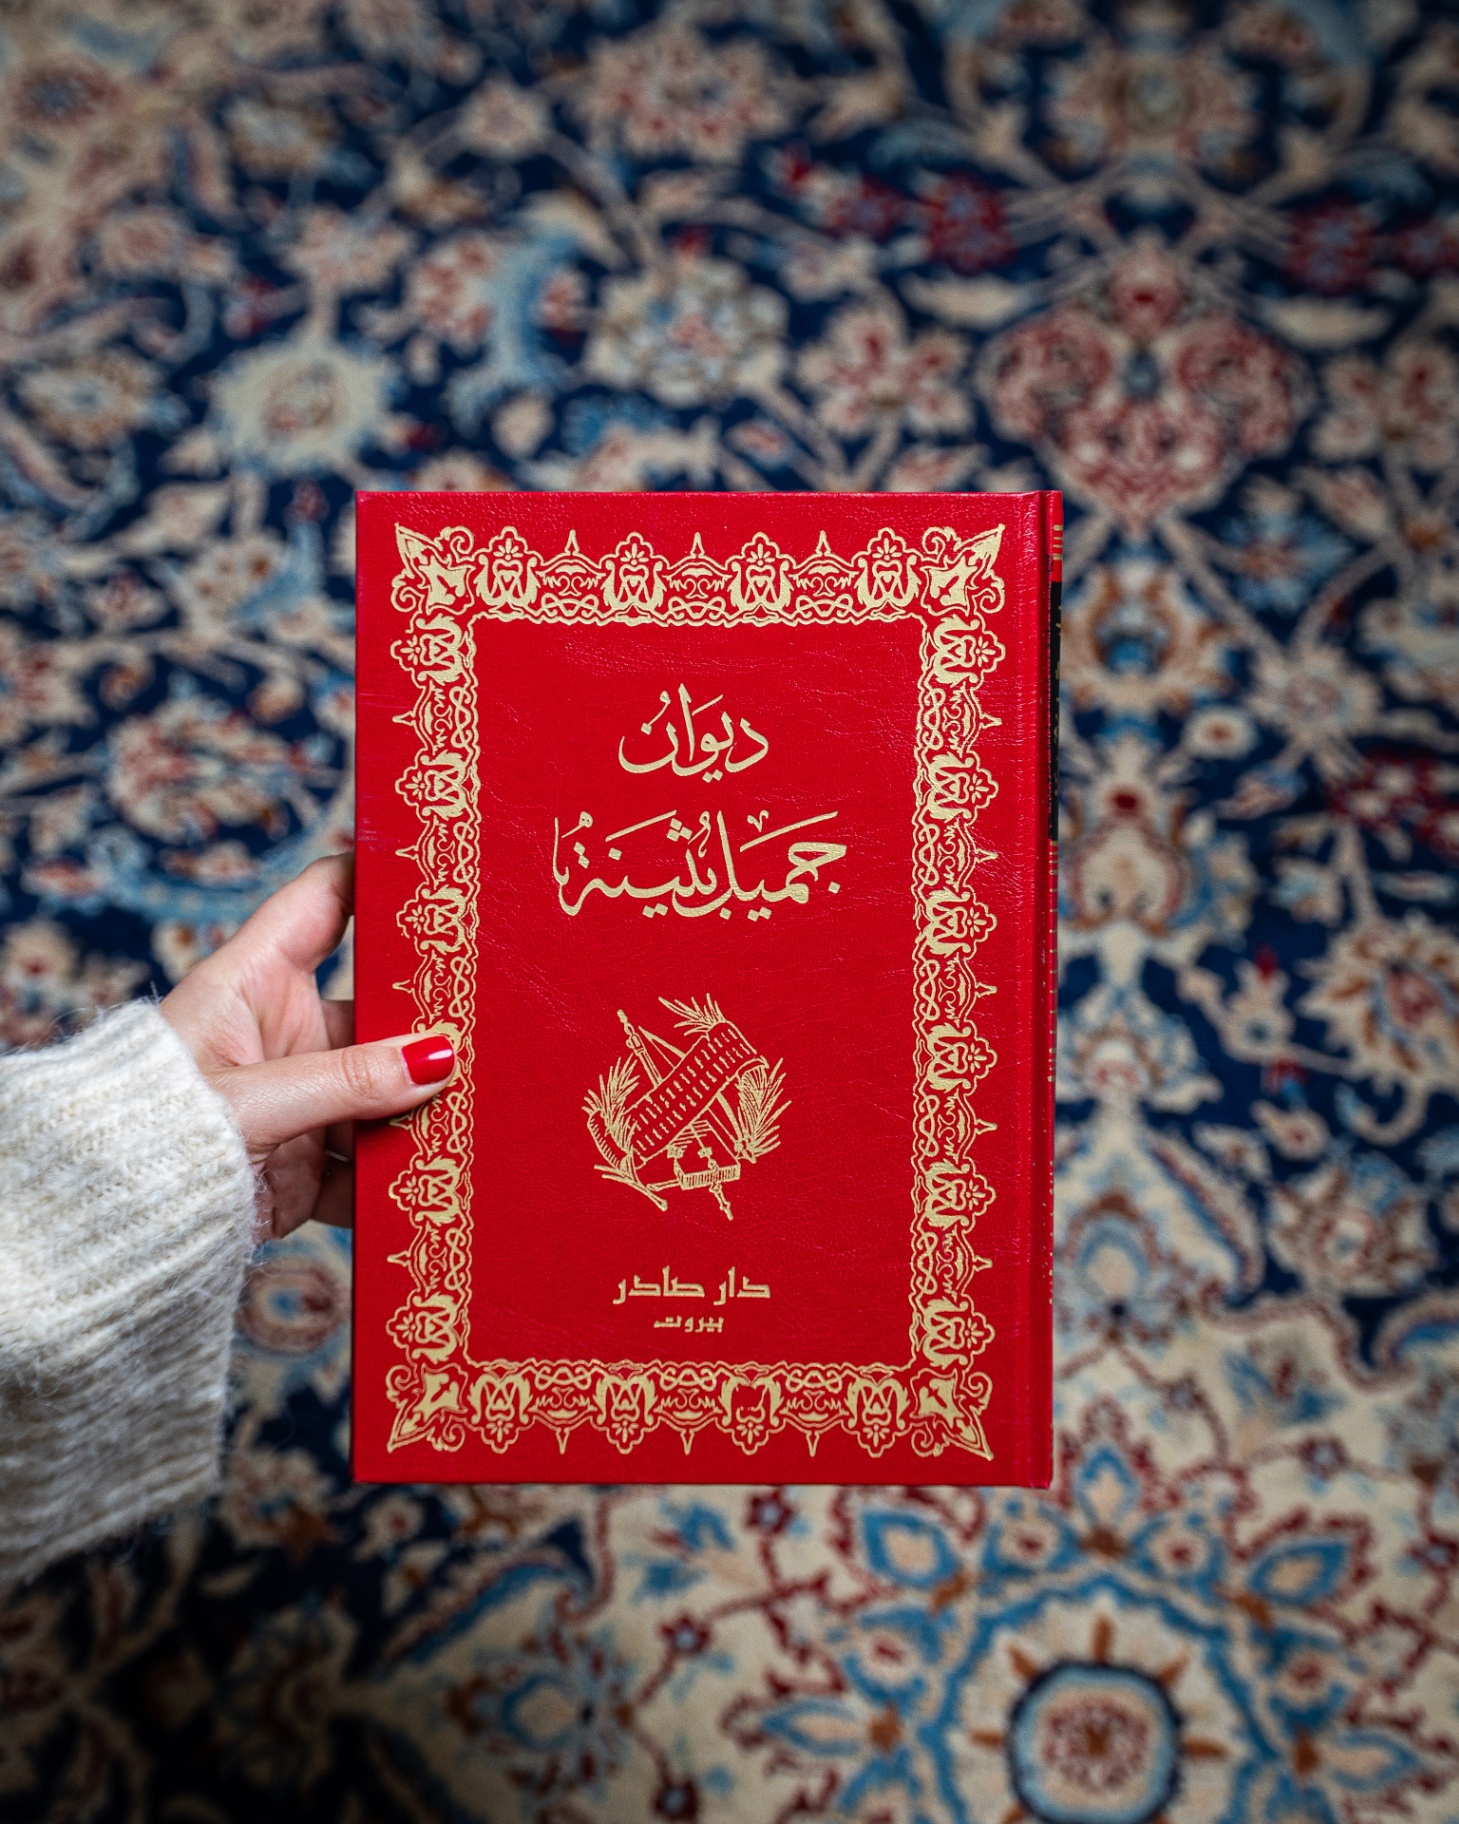 ديوَانُ
جَميل بُثَينَة
دار صادر
بيروت